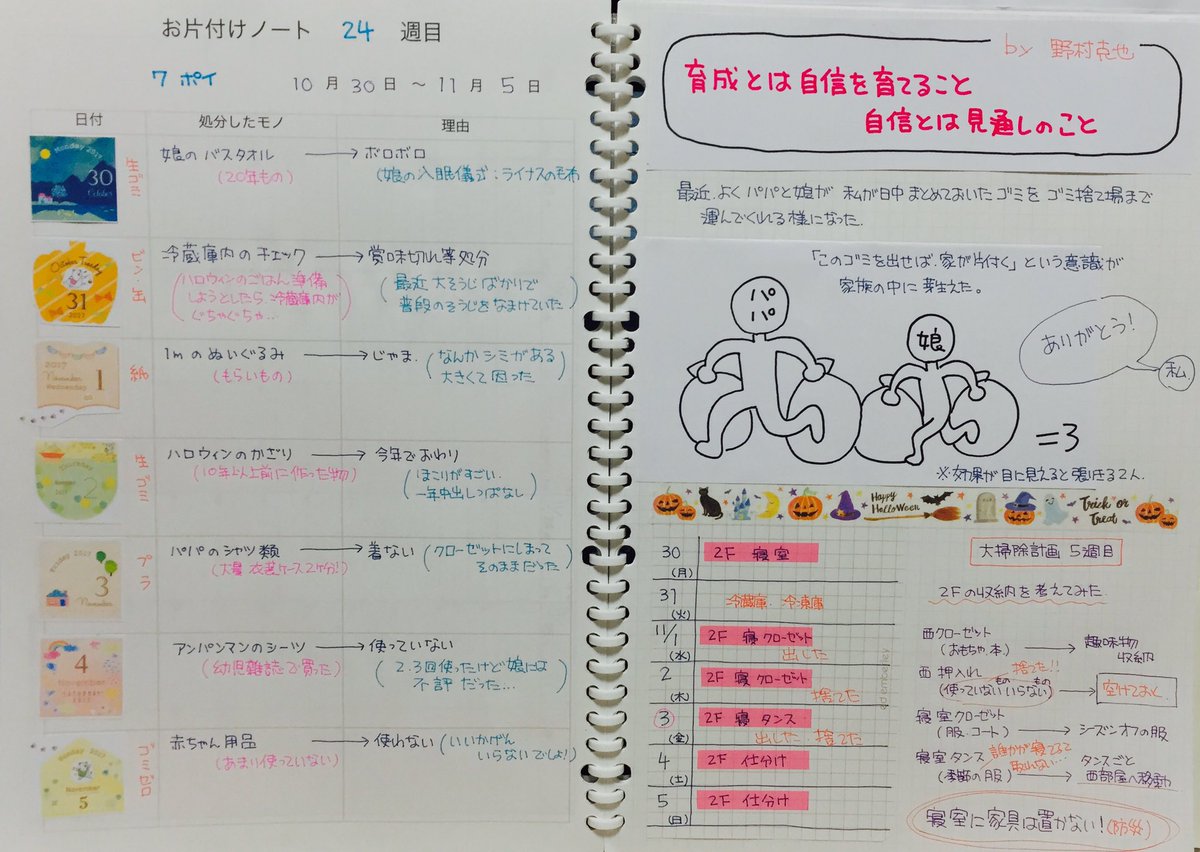 お片付けノート 24 週目
7 ポイ 10 月 30 日 ～ 11 月 5 日
日付 処分したモノ 理由
Monday 2017
30
October
生ゴミ
娘の バスタオル → ボロボロ
(20年もの)
(娘の入眠儀式：ライナスの毛布
31
2017
ビン・缶
冷蔵庫内のチェック → 賞味切れ等処分
(ハロウィンのごはん準備
しようとしたら 冷蔵庫内が
ぐちゃぐちゃ…)
(最近 大そうじばかりで
普段のそうじをなまけていた)
2017
November
Wednesday
1
紙
1mのぬいぐるみ → じゃま.
(もらいもの)
(なんかシミがある
大きくて困った)
2
生ゴミ
ハロウィンのかざり → 今年でおわり
(10年以上前に作った物)
(ほこりがすごい.
一年中出しっぱなし)
Friday 2017
3
November
プラ
パパのシャツ類 → 着ない
(大量 衣装ケース2ケ分!)
(クローゼットにしまって
そのままだった)
4
November
アンパンマンのシーツ → 使っていない
(幼児雑誌で買った)
(2.3回使ったけど娘には
不評だった…)
November
5
ゴミゼロ
赤ちゃん用品 → 使わない
(あまり使っていない)
(いいかげん
いらないでしょ!)
by 野村克也
育成とは自信を育てること
自信とは見通しのこと
最近.よくパパと娘が 私が日中まとめておいたゴミを ゴミ捨て場まで
運んでくれる様になった.
「このゴミを出せば、家が片付く」という意識が
家族の中に芽生えた。
パパ
娘
ありがとう!
私
=3
※効果が目に見えると張り切る2人.
Happy
Halloween
Trick or
Treat
大掃除計画 5週目
30
(月)
2F 寝室
31
(火)
冷蔵庫. 冷凍庫
11/1
(水)
2F 寝クローゼット
出した
2
(木)
2F 寝クローゼット
捨てた
3
(金)
2F 寝タンス
出した. 捨てた
4
(土)
2F 仕分け
5
(日)
2F 仕分け
2Fの収納を考えてみた.
西クローゼット
(おもちゃ.本) → 趣味物
収納
西 押入れ 捨てた!!
(使っていないもの いらないもの) → 空けておく.
寝室クローゼット
(服.コート) → シーズンオフの服
寝室タンス 誰かが寝てるで
取れない…
(季節の服) → タンスごと
西部屋へ移動
寝室に家具は置かない!(防災)